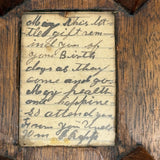 May this lit
tle gift rem
ind you of
your Birth
days as they
come and go.
May health
and happine
ss attend you
From Your Uncle
Wm